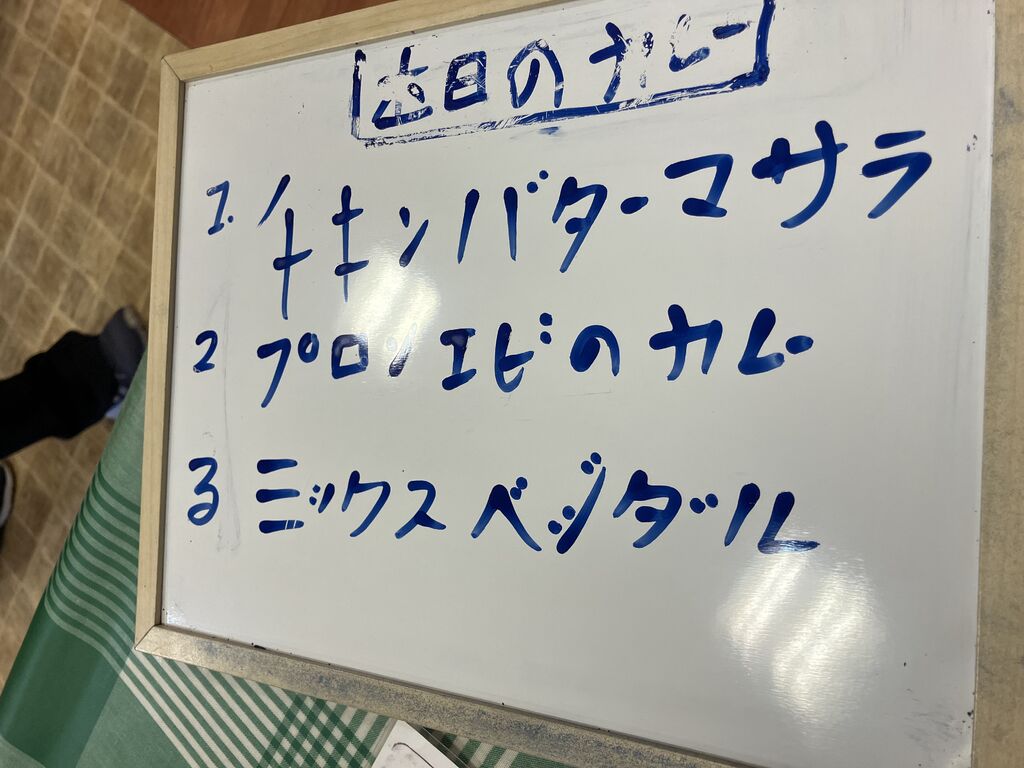 本日のカレー
1. チキンバターマサラ
2 プロンエビのカレー
3 ミックスベジダール